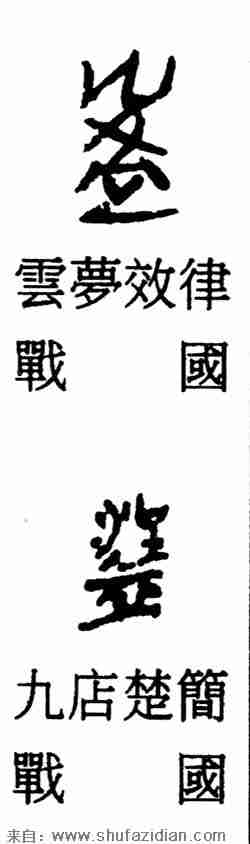 雲夢效律
戰國
九店楚簡
戰國
来自：www.shufazidian.com